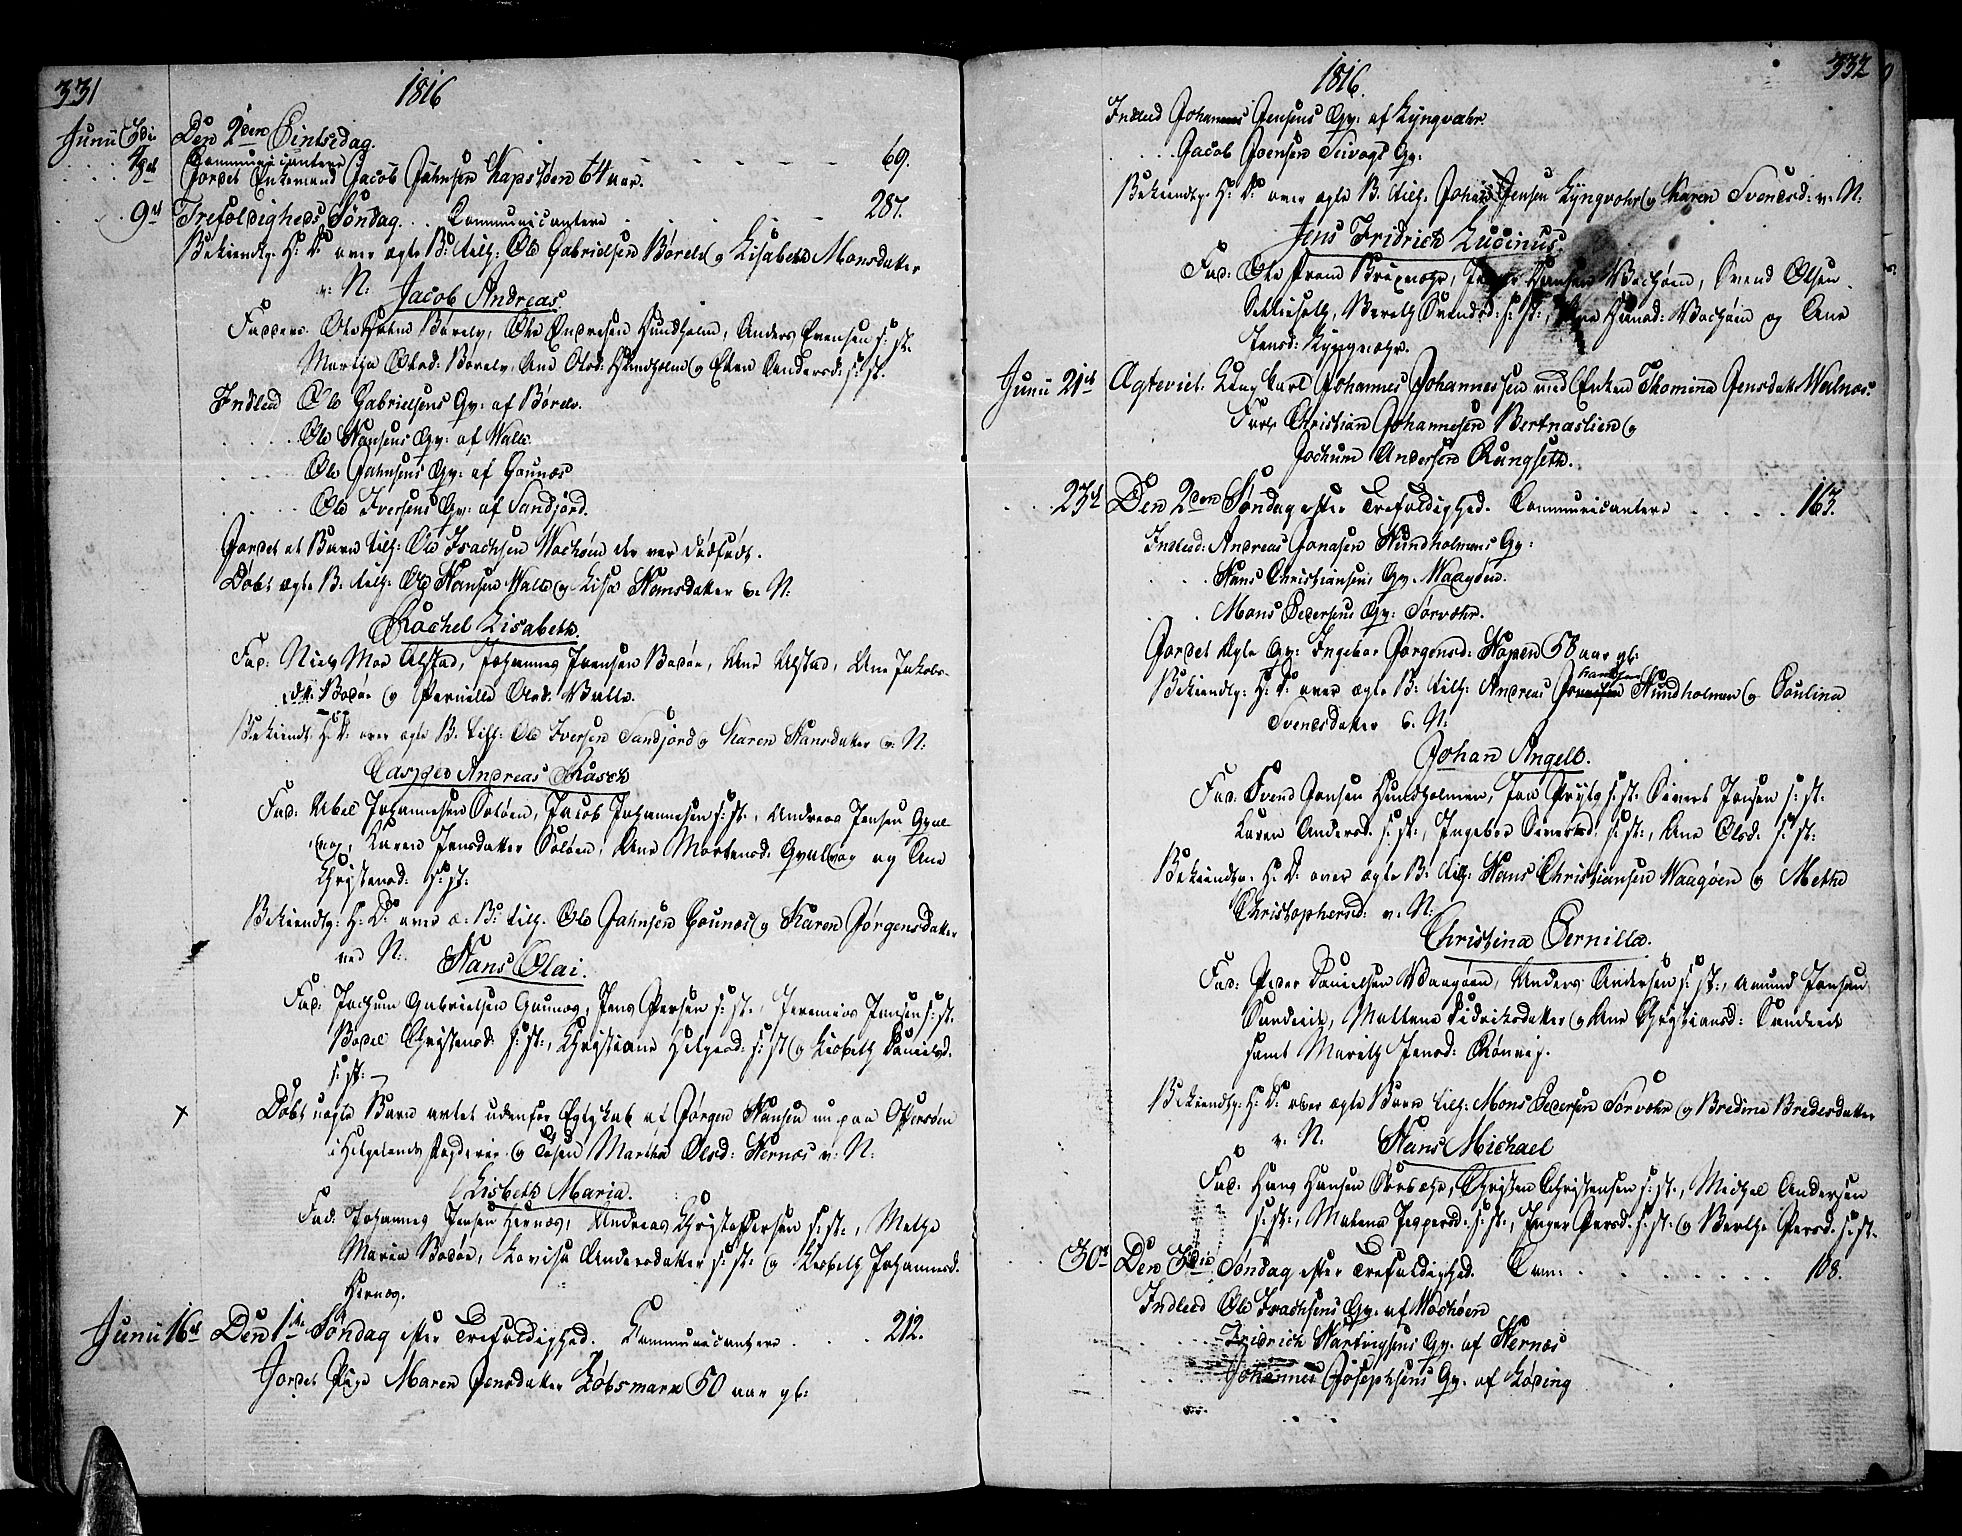 331
1816
Junii 3die Den 2den Pintsedag.
Communicantere 69.
8de Jordet Enkemand Jacob Jahnsen Kapskøen 64 aar.
9de Trefoldigheds Søndag. Communicantere 287.
Bekiendtg: H: D: over ægte B: tilh: Ole Gabrielsen Børelv og Lisabeth Monsdatter
v: N: Jacob Andreas.
Faddere Ole Børelv, Ole Andresen Hundholm, Anders Evensen s: st:
Martha Olsd: Børelv, Ane Olsd: Hundholm og Elen Andersd: s: st:
Indled Ole Gabrielsens Qv: af Børelv.
Ole Hansens Qv: af Walle.
Ole Jahnsens Qv: af Gounæs
Ole Iversens Qv: af Sandjord.
Jordet et Barn tilh: Ole Isachsen Wochøen der var dødfødt.
Døbt ægte B. tilh: Ole Hansen Walle og Lisa Hansdatter v. N:
Rachel Lisabeth.
Fad: Niels Moe Alstad, Johannes Iversen Bodøe, Ane Alstad, Ane Jakobs-
dtt: Bodøe og Pernille Olsd: Walle.
Bekiendt: H: D: over ægte B. tilh: Ole Iversen Sandjord og Karen Hansdatter v: N:
Casper Andreas Rasch
Fad: Abel Johannesen Soløen, Jacob Johannesen s: st:, Andreas Jensen Qval-
vog, Karen Jensdatter Soløen, Ane Mortensd: Qvalvog og Ane
Christensd: s: st:
Bekiendtg: H: D: over æ: B: tilh: Ole Jahnsen Gounæs og Karen Jørgensdatter
ved N: Hans Olai.
Fad: Jochum Gabrielsen Gounæs, Jens Persen s: st:, Jeremias Jensen s: st:
Bodel Christensd: s: st:, Christiane Helgesd: s: st: og Lisbeth Danielsd.
s: st:
Døbt uægte Barn avlet udenfor Egteskab af Jørgen Hansen nu paa Offersøen
i Helgelands Fogderie og Tøsen Martha Olsd: Hernæs v: N:
Lisbeth Maria.
Fad: Johannes Jensen Hernæs, Andreas Christophersen s: st:, Methe
Maria Bodøe, Lovisa Andersdatter s: st: og Lisbeth Johannesd.
Hernæs.
Junii 16de Den 1ste Søndag efter Trefoldighed. Communicantere 212.
Jordet Pige Maren Jensdatter Løbsmark 50 aar gl:
332
1816.
Indled Johannes Jensens Qv: af Lyngvæhr.
Jacob Joensen Seivogs Qv:
Bekiendtg: H: D: over ægte B. tilh: Johans Jensen Lyngvohr og Karen Svendsd: v: N:
Jens Fridrich Lucinus.
Fad: Ole Hansen Wochøen, Svend Olsen
Berith Svendsd: s: st:, Hansd: Wochøen og Ane
Jensd: Lyngvæhr.
Junii 21de Ægteviet Ung Carl Johannes Johannessen med Enken Thomina Jensdatt: Walnæs.
Forl: Christian Johannesen Bertnæslien og
Jochum Andersen Rungseth.
23de Den 2den Søndag efter Trefoldighed. Communicantere 163.
Indled: Andreas Jonasen Hundholmens Qv:
Hans Christiansens Qv. Waagøen.
Mons Pedersens Qv: Sørvæhr.
Jordet Ægte Qv: Ingebor Jørgensd: Hopen 58 aar gl:
Bekiendtg: H: D: over ægte B: tilh: Andreas Jonasen Hansen Hundholmen og Paulina
Svendsdatter v: N:
Johan Angell.
Fad. Svend Jensen Hundholmen, Jon s: st: Sivert Jensen s: st:
Karen Andersd. s: st:, Ingebor Sivertsd. s: st:, Ane Olsd. s: st:
Bekiendtg: H: D: over ægte B: tilh: Hans Christiansen Waagøen og Methe
Christophersd: v: N:
Christina Pernilla.
Fad: Peder Danielsen Waagøen, Anders Andersen s: st:, Amund Jensen
Sundeide, Maltene Didriksdatter og Ane Christiansd: Sundeide
samt Marith Jensd: Rønvig.
Bekiendtg: H: D: over ægte Barn tilh: Mons Pedersen Sørvæhr og Bredine Bredesdatter
v: N. Hans Michael
Fad: Hans Hansen Christen Christensen s: st:, Michel Andersen
s: st:, Malena Jeppesd: s: st:, Inger Persd: s: st: og Berthe Persd: s: st:
30te Den 3die Søndag efter Trefoldighed. Com: 108.
Indled Ole Isachsens Qv: af Wochøen
Fridrich Hartvigsens Qv. af Hernæs
Johannes Josephsens Qv. af Løding